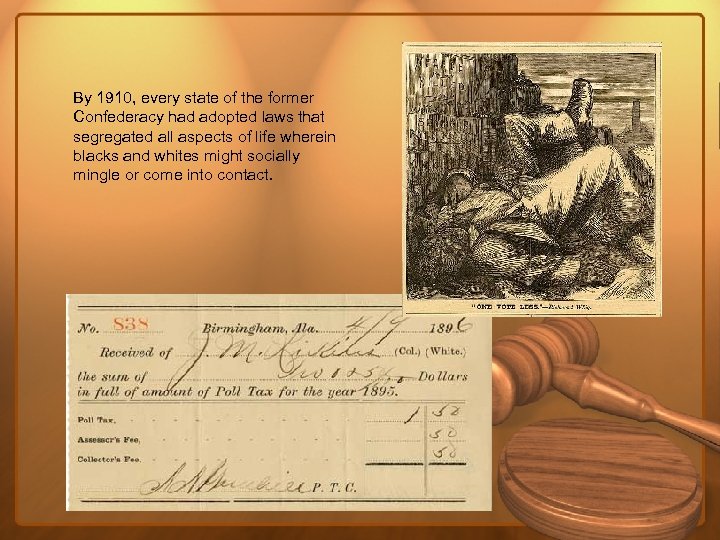 By 1910, every state of the former
Confederacy had adopted laws that
segregated all aspects of life wherein
blacks and whites might socially
mingle or come into contact.
"ONE VOTE LESS."—Richmond Whig.
No. 838 Birmingham, Ala. 4/9 1896
Received of J. M. (Col.) (White.)
the sum of Two 50 Dollars
in full of amount of Poll Tax for the year 1895.
Poll Tax, 1 50
Assessor's Fee, 50
Collector's Fee. 50
P. T. C.